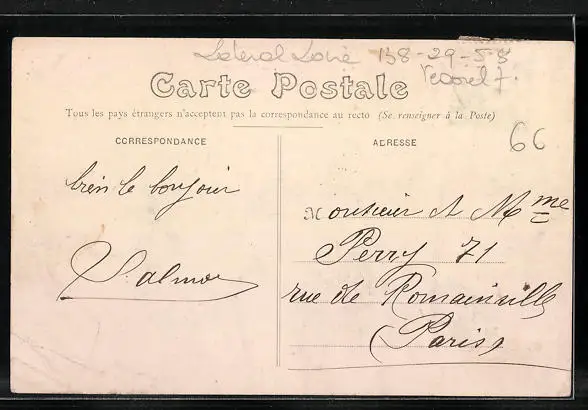 138-29-58
Carte Postale
Tous les pays étrangers n'acceptent pas la correspondance au recto (Se renseigner à la Poste)
CORRESPONDANCE
ADRESSE
66
bien le bonjour
Valmor
Monsieur et Mme
Perry 71
rue de Romainville
Paris